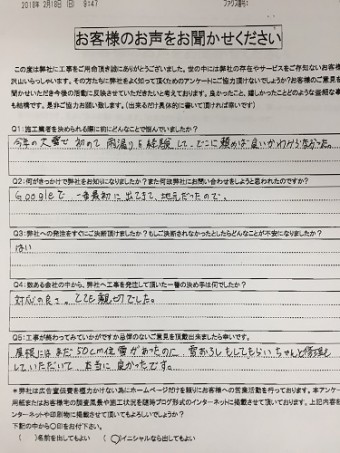 2018年 2月18日 (日) 9:47
ファクス番号:
お客様のお声をお聞かせください
この度は弊社に工事をご用命頂き誠にありがとうございました。世の中には弊社の存在やサービスをご存知ないお客様が
沢山いらっしゃいます。その方たちに弊社をよく知って頂くためのアンケートにご協力頂けないでしょうか?お客様のご意見を
お聞かせいただき今後の活動に反映させていただきたいと考えております。良かったこと、嬉しかったことどのような些細な事
も結構です。是非ご協力お願い致します。(出来るだけ具体的に書いて頂ければ幸いです)
Q1:施工業者を決められる際に前にどんなことで悩んでいましたか?
今年の大雪で 初めて 雨漏りを経験して、どこに頼めば良いかわからなかった。
Q2:何がきっかけで弊社をお知りになりましたか?また何故弊社にお問い合わせをしようと思われたのですか?
Googleで 一番最初に出てきて、地元だったので。
Q3:弊社への発注をすぐにご決断頂けましたか?もしご決断されなかったとしたらどんなことが不安になりましたか?
はい
Q4:数ある会社の中から、弊社へ工事を発注して頂いた一番の決め手は何でしたか?
対応の良さ。とても親切でした。
Q5:工事が終わってみていかがですか忌憚のないご意見を頂戴出来ましたら幸いです。
屋根にはまだ50cm位雪があったのに 雪おろしもしてもらい ちゃんと修理し
していただいて 本当に良かったです。
*弊社は広告宣伝費を極力かけない為にホームページだけを頼りにお客様への営業活動を行っております。本アンケー
用紙またはお客様宅の調査風景や施工状況を随時ブログ形式のインターネットに掲載させて頂いております。上記内容を
ンターネットや印刷物に掲載させて頂いてもよろしいでしょうか?
下記の中から〇印をお付け下さい。
( )名前を出してもよい (〇)イニシャルなら出してもよい